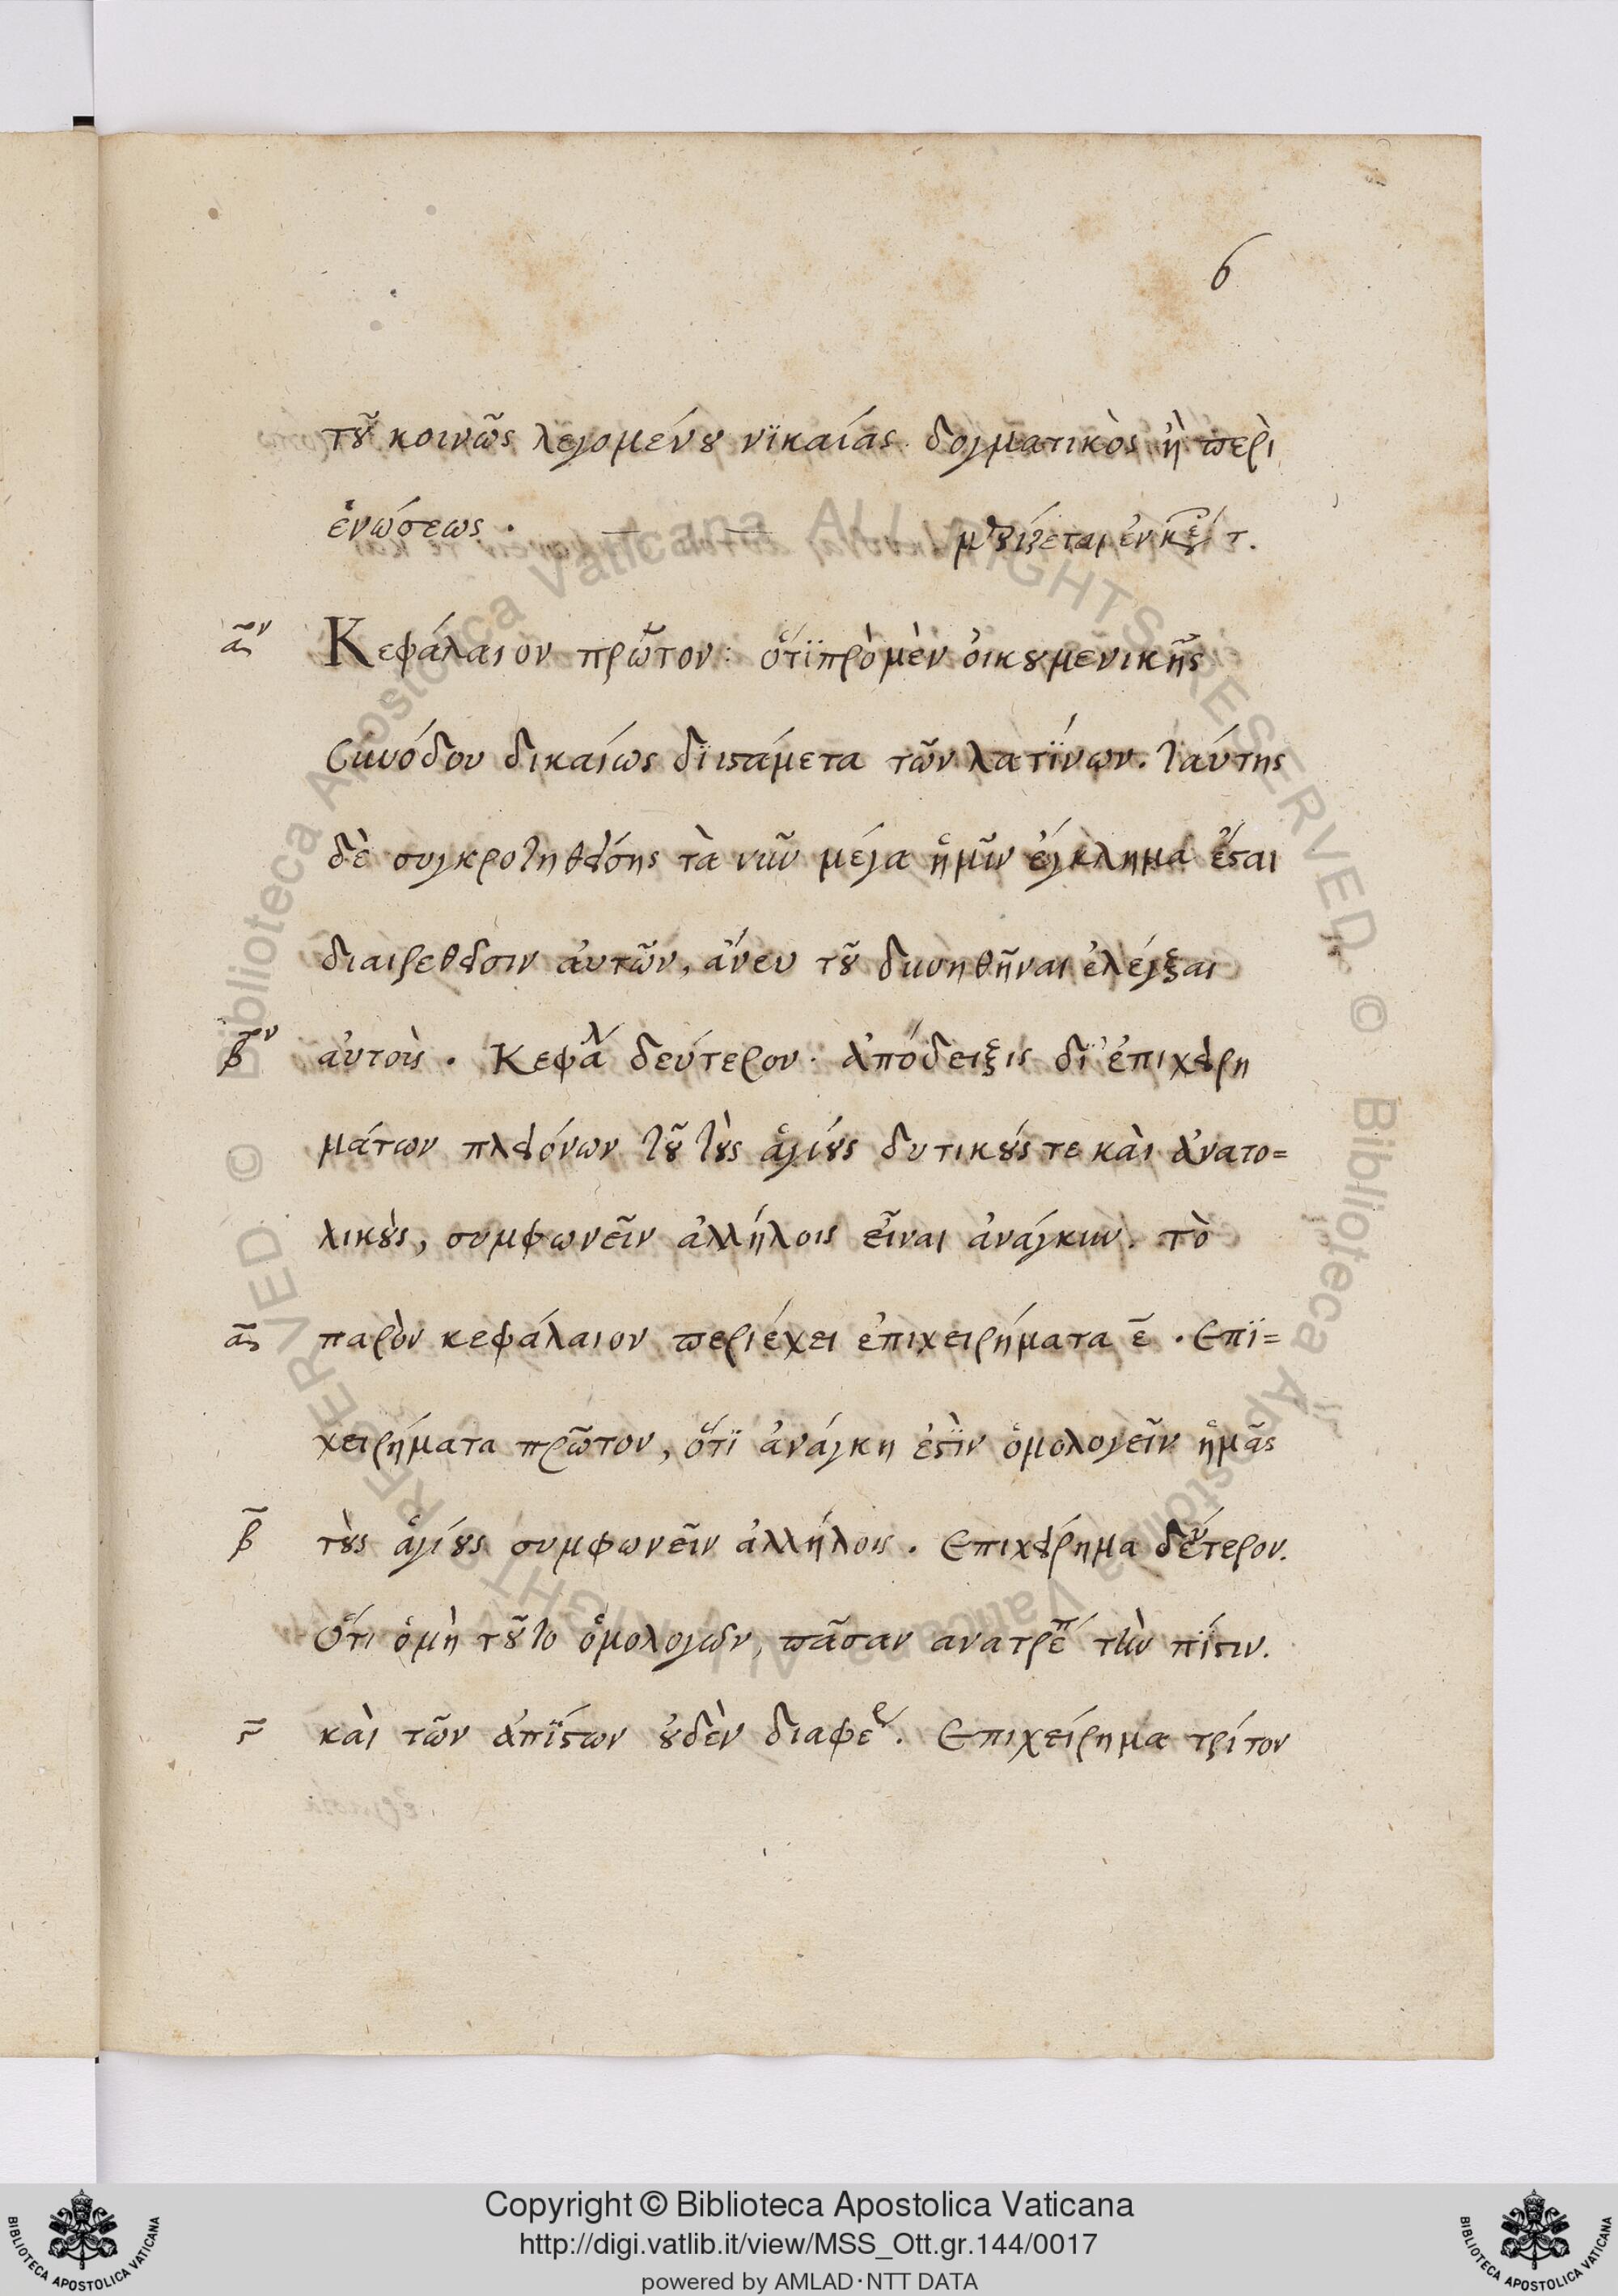 6
τοῦ κοινῶς λεγομένου νϊκαίας. δογματικὸς ἢ περὶ
ἑνώσεως.
α̃ον Κεφάλαιον πρῶτον: ὅτϊ πρὸ μὲν ὀικουμενικῆς
Συνόδου δικαίως διϊστάμετα τῶν λατίνων. ταύτης
δὲ συγκροτηθείσης τὰ νῦν μέγα ἡμῖν ἔγκλημα ἔσται
διαιρεθεῖσιν ἀυτῶν, ἄνευ τοῦ δυνηθῆναι ἐλέγξαι
β̃ον ἀυτούς. Κεφαλ δεύτερον. ἀπόδειξις δϊ' ἐπιχειρη
μάτων πλειόνων τοῦ τοὺς ἁγίους δυτικούς τε κὰι ἀνατο=
λικοὺς, συμφωνεῖν ἀλλήλοις εἶναι ἀνάγκην. τὸ
α̃ον παρὸν κεφάλαιον περιέχει ἐπιχειρήματα ε̄. Επϊ=
χειρήματα πρῶτον, ὅτϊ ἀνάγκη ἐστὶν ὁμολογεῖν ἡμᾶς
β̃ τοὺς ἁγίους συμφωνεῖν ἀλλήλοις. Επιχείρημα δέυτερον.
Ὅτι ὁ μὴ τοῦτο ὁμολογῶν, πᾶσαν ανατρέπ τὴν πίστιν.
κὰι τῶν ἀπΐστων οὐδὲν διαφερ. Επιχείρημα τρίτον
Copyright © Biblioteca Apostolica Vaticana
http://digi.vatlib.it/view/MSS_Ott.gr.144/0017
powered by AMLAD·NTT DATA
BIBLIOTECA APOSTOLICA VATICANA
BIBLIOTECA APOSTOLICA VATICANA